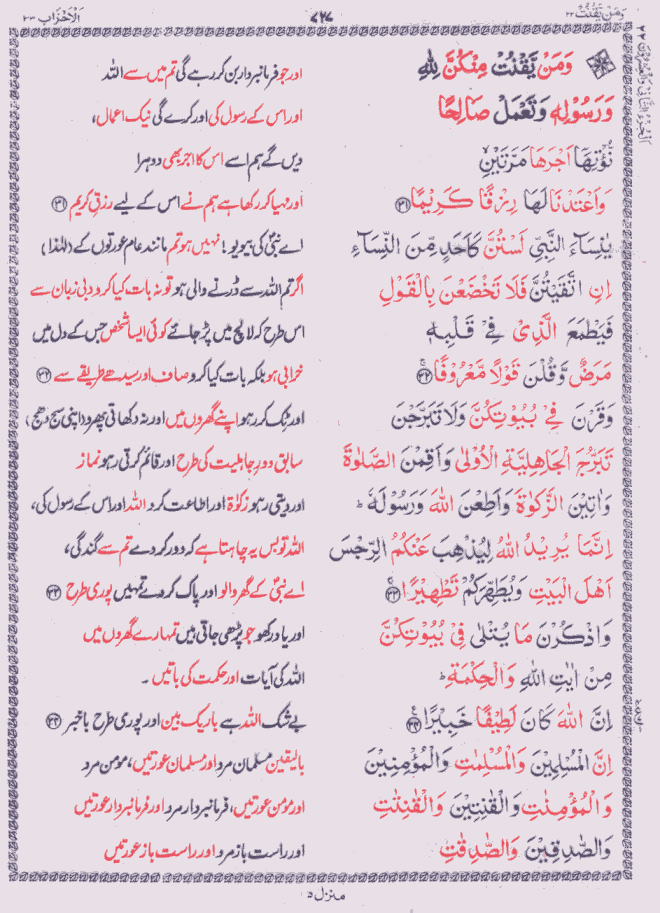 وَمَنْ يَّقْنُتْ ٢٢
٧٢٧
اَلْاَحْزَاب ٣٣
وَمَنْ يَّقْنُتْ مِنْكُنَّ لِلّٰهِ
اور جو فرمانبردار بن کر رہے گی تم میں سے اللہ
وَرَسُوْلِهٖ وَتَعْمَلْ صَالِحًا
اور اس کے رسول کی اور کرے گی نیک اعمال،
نُّؤْتِهَاۤ اَجْرَهَا مَرَّتَيْنِۙ
دیں گے ہم اسے اس کا اجر بھی دوہرا
وَاَعْتَدْنَا لَهَا رِزْقًا كَرِيْمًا ﴿۳۱﴾
اور مہیا کر رکھا ہے ہم نے اس کے لیے رزقِ کریم ﴿۳۱﴾
يٰنِسَآءَ النَّبِيِّ لَسْتُنَّ كَاَحَدٍ مِّنَ النِّسَآءِ
اے نبیؐ کی بیویو! نہیں ہو تم مانند عام عورتوں کے (لہٰذا)
اِنِ اتَّقَيْتُنَّ فَلَا تَخْضَعْنَ بِالْقَوْلِ
اگر تم اللہ سے ڈرنے والی ہو تو نہ بات کیا کرو دبی زبان سے
فَيَطْمَعَ الَّذِيْ فِيْ قَلْبِهٖ
اس طرح کہ لالچ میں پڑ جائے کوئی ایسا شخص جس کے دل میں
مَرَضٌ وَّقُلْنَ قَوْلًا مَّعْرُوْفًا ﴿۳۲﴾
خرابی ہو بلکہ بات کیا کرو صاف اور سیدھے طریقے سے ﴿۳۲﴾
وَقَرْنَ فِيْ بُيُوْتِكُنَّ وَلَا تَبَرَّجْنَ
اور ٹِک کر رہو اپنے گھروں میں اور نہ دکھاتی پھرو (اپنی سج دھج)
تَبَرُّجَ الْجَاهِلِيَّةِ الْاُوْلٰى وَاَقِمْنَ الصَّلٰوةَ
سابق دورِ جاہلیت کی طرح اور قائم کرتی رہو نماز
وَاٰتِيْنَ الزَّكٰوةَ وَاَطِعْنَ اللّٰهَ وَرَسُوْلَهٗ ؕ
اور دیتی رہو زکوٰۃ اور اطاعت کرو اللہ اور اس کے رسول کی،
اِنَّمَا يُرِيْدُ اللّٰهُ لِيُذْهِبَ عَنْكُمُ الرِّجْسَ
اللہ تو بس یہ چاہتا ہے کہ دور کر دے تم سے گندگی،
اَهْلَ الْبَيْتِ وَيُطَهِّرَكُمْ تَطْهِيْرًا ﴿۳۳﴾
اے نبیؐ کے گھر والو اور پاک کر دے تمہیں پوری طرح ﴿۳۳﴾
وَاذْكُرْنَ مَا يُتْلٰى فِيْ بُيُوْتِكُنَّ
اور یاد رکھو جو پڑھی جاتی ہیں تمہارے گھروں میں
مِنْ اٰيٰتِ اللّٰهِ وَالْحِكْمَةِ ؕ
اللہ کی آیات اور حکمت کی باتیں ۔
اِنَّ اللّٰهَ كَانَ لَطِيْفًا خَبِيْرًا ﴿۳۴﴾
بے شک اللہ ہے باریک بین اور پوری طرح باخبر ﴿۳۴﴾
اِنَّ الْمُسْلِمِيْنَ وَالْمُسْلِمٰتِ وَالْمُؤْمِنِيْنَ
بالیقین مسلمان مرد اور مسلمان عورتیں، مومن مرد
وَالْمُؤْمِنٰتِ وَالْقٰنِتِيْنَ وَالْقٰنِتٰتِ
اور مومن عورتیں، فرمانبردار مرد اور فرمانبردار عورتیں
وَالصّٰدِقِيْنَ وَالصّٰدِقٰتِ
اور راست باز مرد اور راست باز عورتیں
منزل ۵